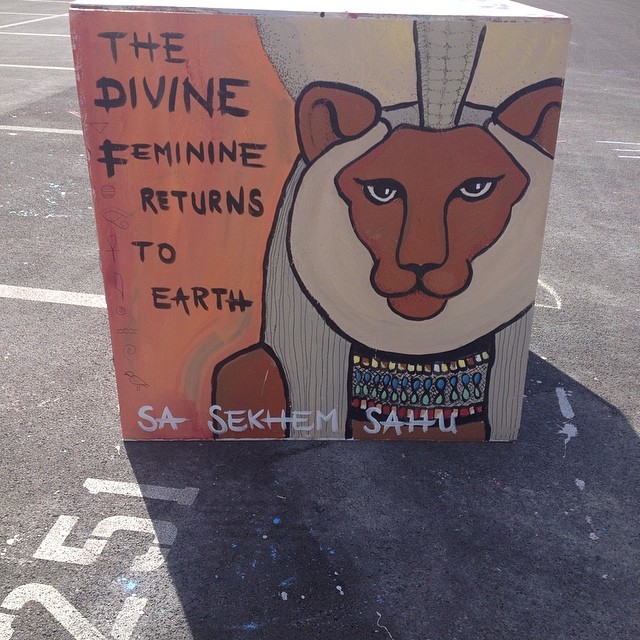 THE
DIVINE
FEMININE
RETURNS
TO
EARTH
SA SEKHEM SAHU
251